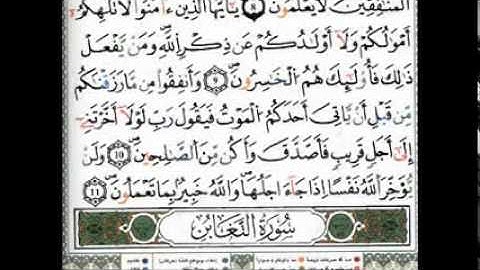 اَ۬لْمُنَٰفِقِينَ لَا يَعْلَمُونَ ⑧ يَٰٓأَيُّهَا اَ۬لذِينَ ءَامَنُواْ لَا تُلْهِكُمُۥٓ
أَمْوَٰلُكُمْ وَلَآ أَوْلَٰدُكُمْ عَن ذِكْرِ اِ۬للَّهِ وَمَنْ يَّفْعَلْ
ذَٰلِكَ فَأُوْلَٰٓئِكَ هُمُ اُ۬لْخَٰسِرُونَ ⑨ وَأَنفِقُواْ مِن مَّا رَزَقْنَٰكُم
مِّن قَبْلِ أَنْ يَّاتِىَ أَحَدَكُمُ اُ۬لْمَوْتُ فَيَقُولَ رَبِّ لَوْلَآ أَخَّرْتَنِےٓ
إِلَىٰٓ أَجَلٍ قَرِيبٍ فَأَصَّدَّقَ وَأَكُن مِّنَ اَ۬لصَّٰلِحِينَ ⑩ وَلَنْ
يُّؤَخِّرَ اَ۬للَّهُ نَفْسًا اِذَا جَآءَ اجَلُهَا وَاللَّهُ خَبِيرٌۢ بِمَا تَعْمَلُونَ ⑪
سُورَةُ التَّغَابُنِ